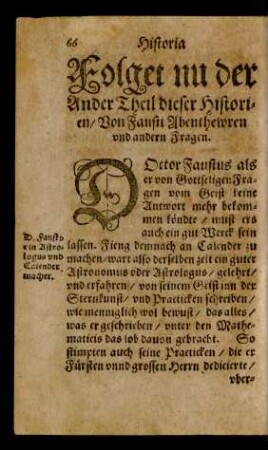 66 Historia
Folget nu der
Ander Theil dieser Histori-
en/ Von Fausti Abenthewren
vnd andern Fragen.
DOctor Faustus als
er von Gottseligen Fra-
gen vom Geist keine
Antwort mehr bekom-
men kondte/ must ers
auch ein gut Werck sein
lassen. Fieng demnach an Calender zu
machen/ wart also derselben zeit ein guter
Astronomus oder Astrologus/ gelehrt/
vnd erfahren/ von seinem Geist inn der
Sternkunst/ vnd Practicken schreiben/
wie menniglich wol bewust/ das alles/
was er geschrieben/ vnter den Mathe-
maticis das lob dauon gebracht. So
stimpten auch seine Practicken/ die er
Fürsten vnnd grossen Herrn dedicierte/
vber-
D. Faustus
ein Astro-
logus vnd
Calender
macher.